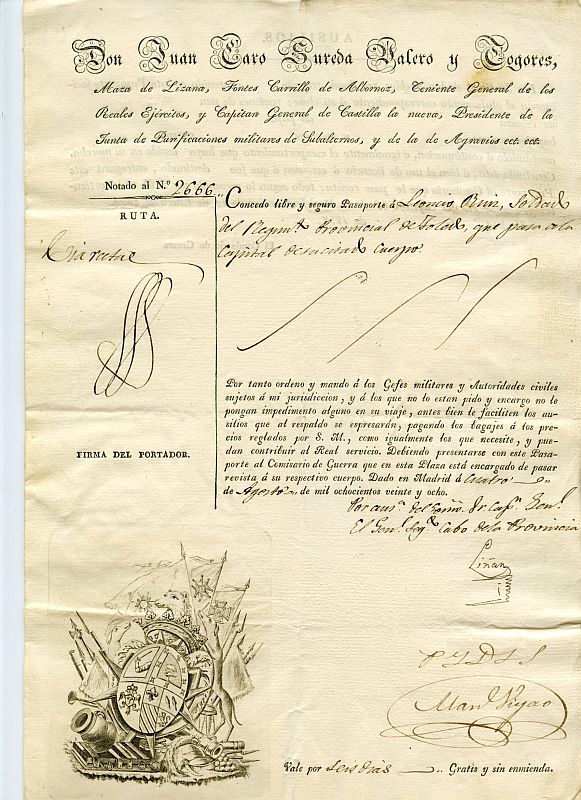 Don Juan Caro Sureda Valero y Togores,
Maza de Lizana, Fontes Carrillo de Albornoz, Teniente General de los
Reales Ejércitos, y Capitan General de Castilla la nueva, Presidente de la
Junta de Purificaciones militares de Subalternos, y de la de Agravios ect. ect.
Notado al N.º 2666..
RUTA.
FIRMA DEL PORTADOR.
Concedo libre y seguro Pasaporte á Leoncio Ruiz, Soldado
del Regim.to Provincial de Toledo, que pasa a la
Capital de su cuerpo
Por tanto ordeno y mando á los Gefes militares y Autoridades civiles
sujetos á mi jurisdiccion, y á los que no lo estan pido y encargo no le
pongan impedimento alguno en su viaje, antes bien le faciliten los au-
silios que al respaldo se espresarán, pagando los bagajes á los
precios reglados por S. M., como igualmente los que necesite, y pue-
dan contribuir al Real servicio. Debiendo presentarse con este Pasa-
porte al Comisario de Guerra que en esta Plaza está encargado de pasar
revista á su respectivo cuerpo. Dado en Madrid á cuatro
de Agosto de mil ochocientos veinte y ocho.
Por aus.a del Exmo. Sr. Cap.n Gen.l
El Gen.l Seg.do Cabo de la Provincia
Liñan
Man.l
Vale por seis dias .. Gratis y sin enmienda.